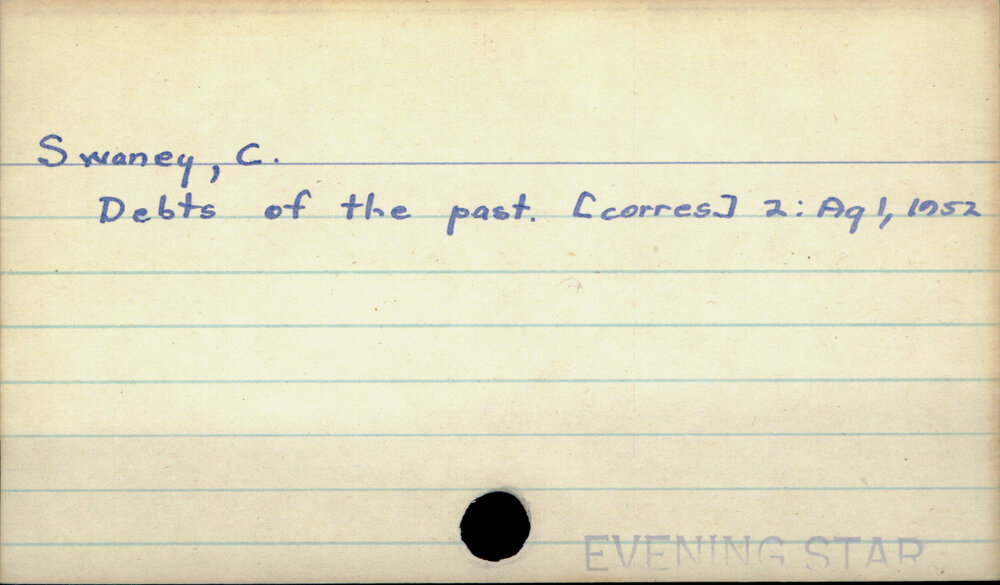 Swaney, C.
Debts of the past. [corres.] 2: Ag 1, 1952
EVENING STAR